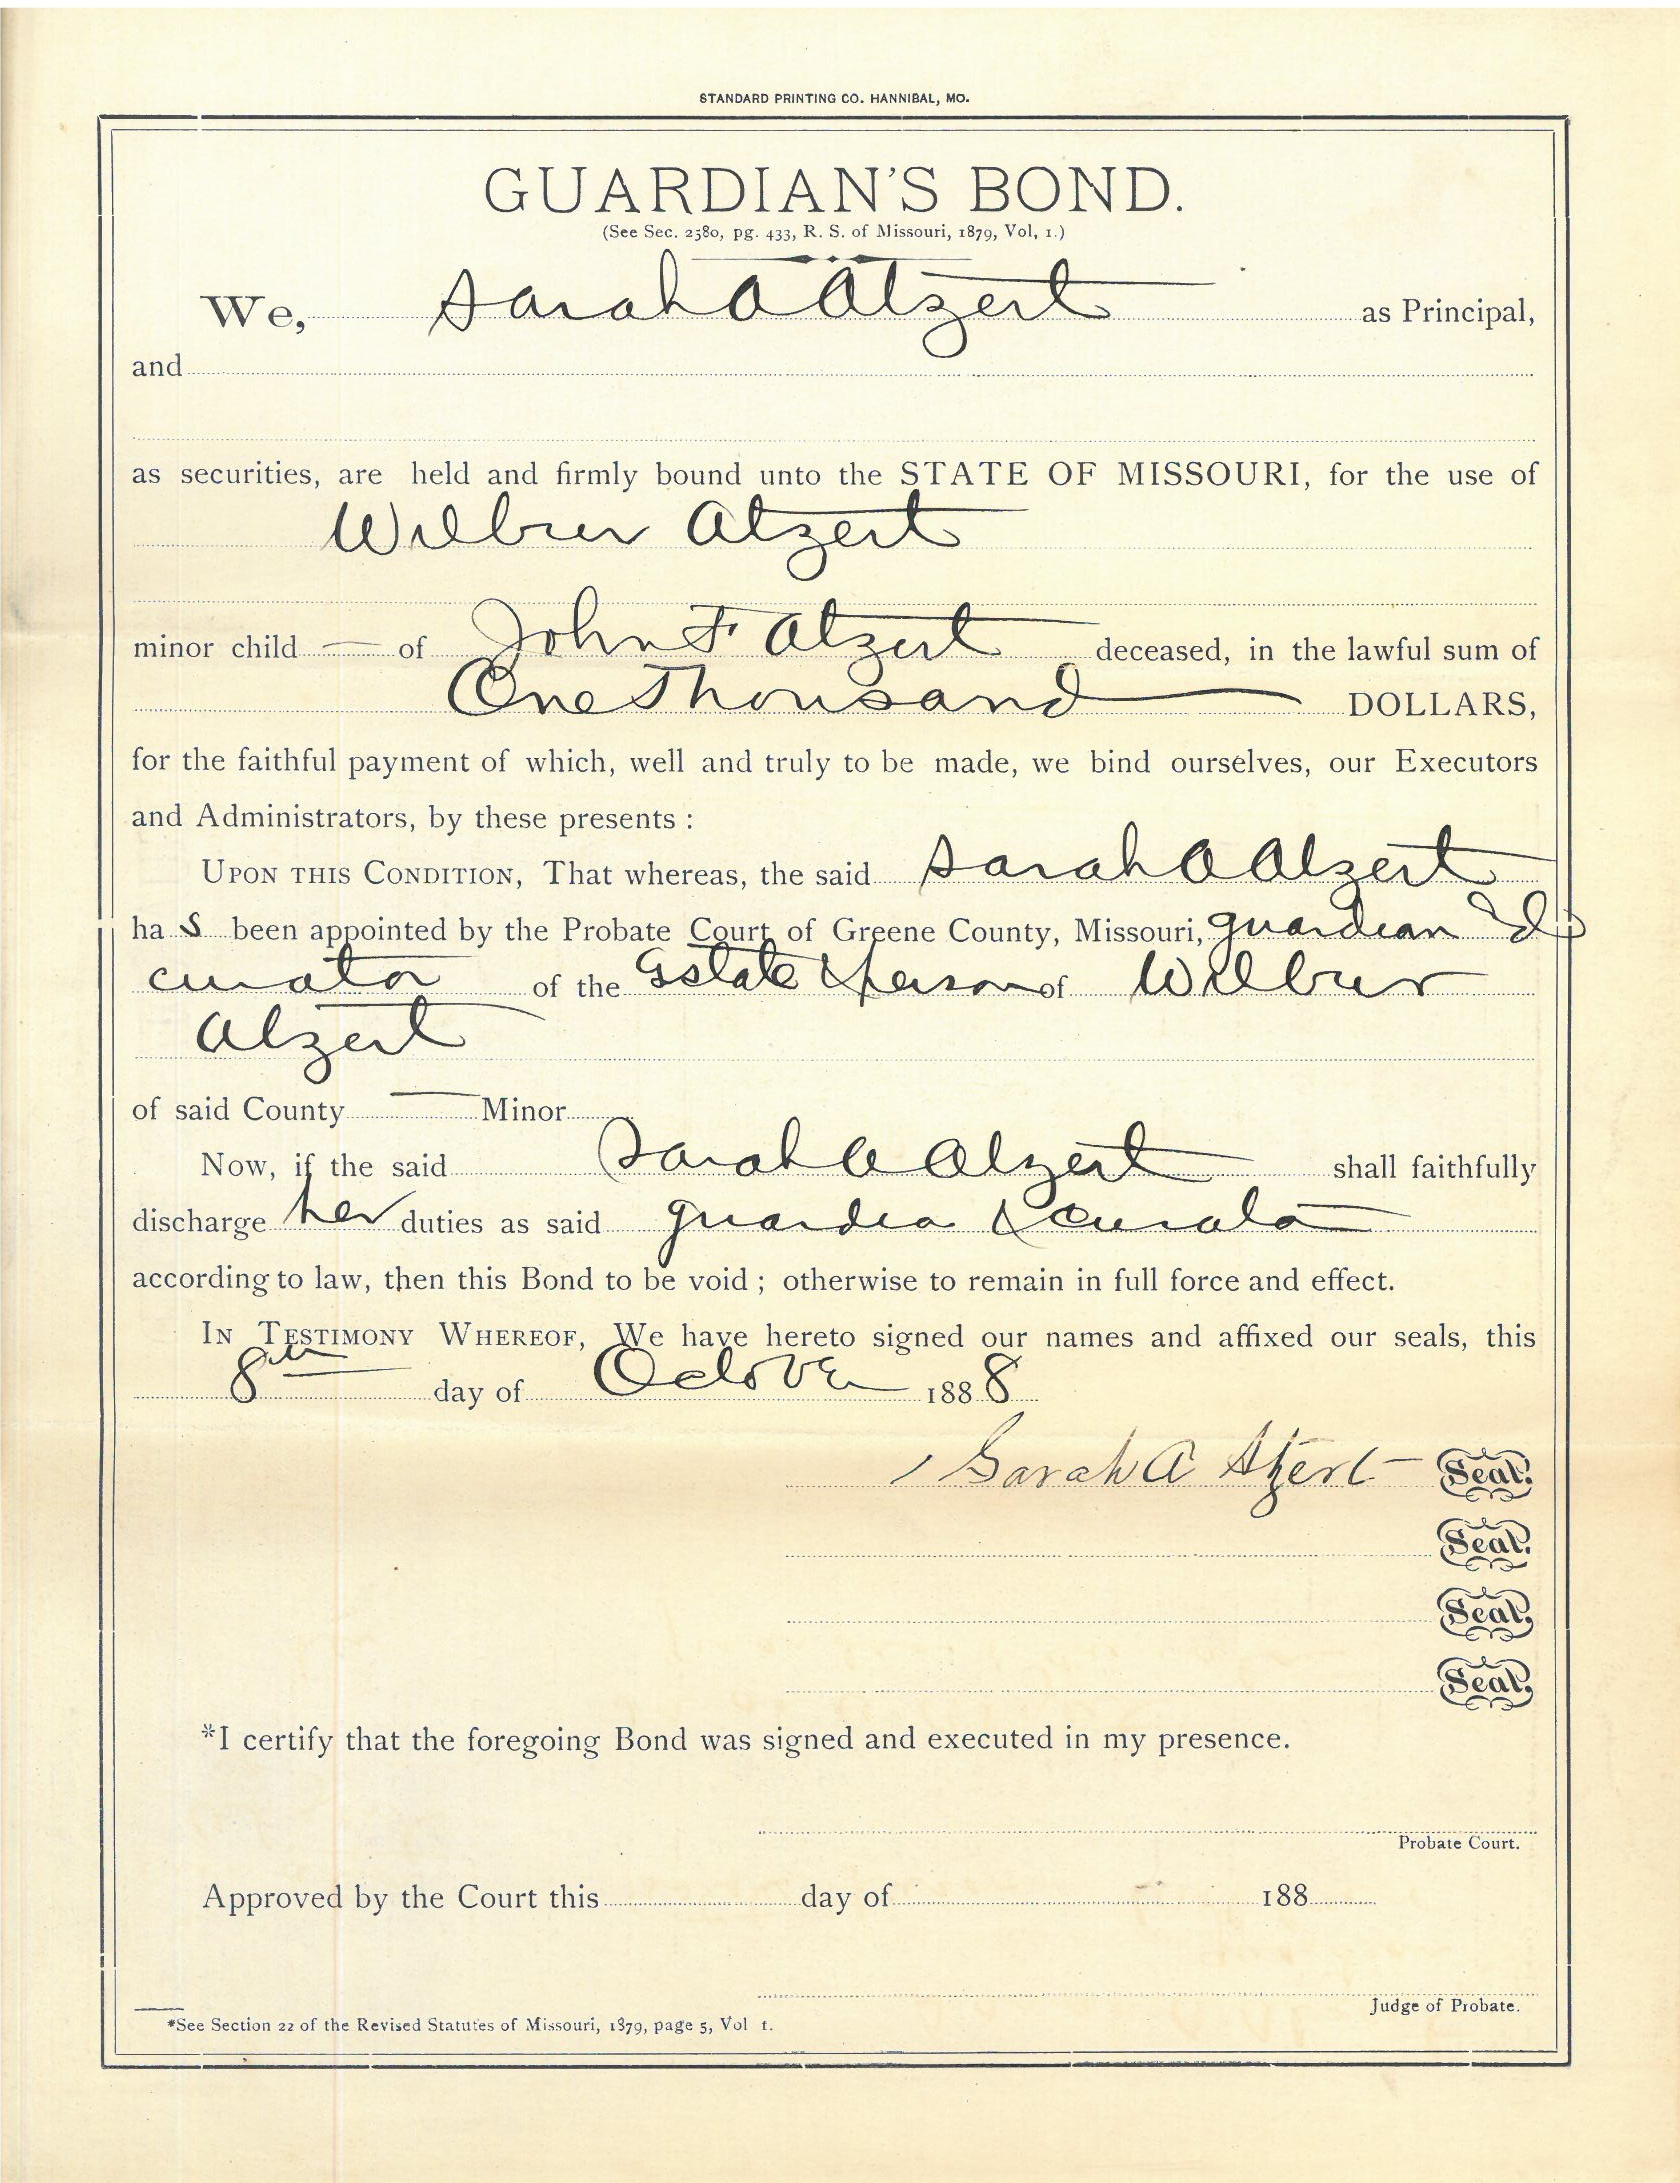 STANDARD PRINTING CO. HANNIBAL, MO.
GUARDIAN'S BOND.
(See Sec. 2580, pg. 433, R. S. of Missouri, 1879, Vol, 1.)
We, Sarah A Atzert as Principal,
and
as securities, are held and firmly bound unto the STATE OF MISSOURI, for the use of
Wilbur Atzert
minor child — of John F Atzert deceased, in the lawful sum of
One Thousand DOLLARS,
for the faithful payment of which, well and truly to be made, we bind ourselves, our Executors
and Administrators, by these presents :
UPON THIS CONDITION, That whereas, the said Sarah A Atzert
ha s been appointed by the Probate Court of Greene County, Missouri, guardian &
curator of the Estate & person of Wilbur
Atzert
of said County — Minor
Now, if the said Sarah A Atzert shall faithfully
discharge her duties as said guardian & curator
according to law, then this Bond to be void ; otherwise to remain in full force and effect.
IN TESTIMONY WHEREOF, We have hereto signed our names and affixed our seals, this
8th day of October 1888
Sarah A Atzert Seal.
Seal.
Seal.
Seal.
*I certify that the foregoing Bond was signed and executed in my presence.
Probate Court.
Approved by the Court this day of 188
Judge of Probate.
*See Section 22 of the Revised Statutes of Missouri, 1879, page 5, Vol 1.